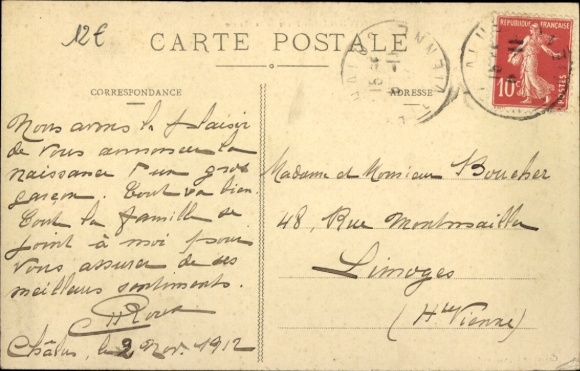 12€
CARTE POSTALE
CORRESPONDANCE
ADRESSE
RÉPUBLIQUE FRANÇAISE
10c
POSTES
Nous avons le plaisir
de vous annoncer la
naissance d'un gros
garçon. Tout va bien.
Tout la famille se
joint à moi pour
vous assurer de ses
meilleurs sentiments.
Roux
Châlus, le 2 Nov. 1912
Madame et Monsieur Boucher
48, Rue Montmailler
Limoges
(Hte Vienne)